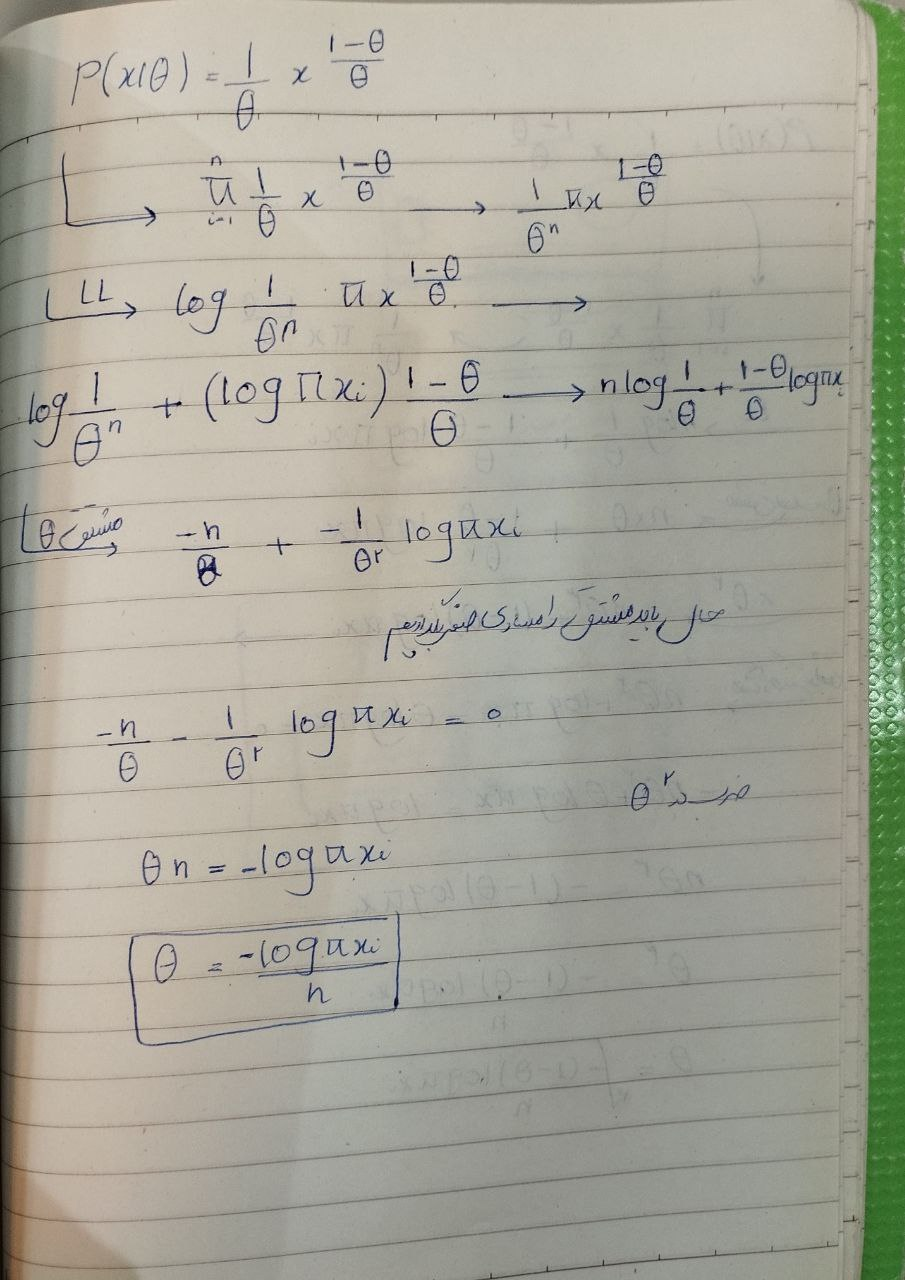 P(x|θ) = 1/θ x^((1-θ)/θ)
∏_{i=1}^{n} 1/θ x^((1-θ)/θ) → 1/θ^n πx^((1-θ)/θ)
LL → log 1/θ^n πx^((1-θ)/θ) →
log 1/θ^n + (log πxi) (1-θ)/θ → n log 1/θ + (1-θ)/θ log πxi
مشتق θ → -n/θ + -1/θ^۲ log πxi
حال باید مشتق را مساوی صفر بگذاریم
-n/θ - 1/θ^۲ log πxi = ۰
ضرب در θ^۲
θn = -log πxi
θ = -log πxi / n